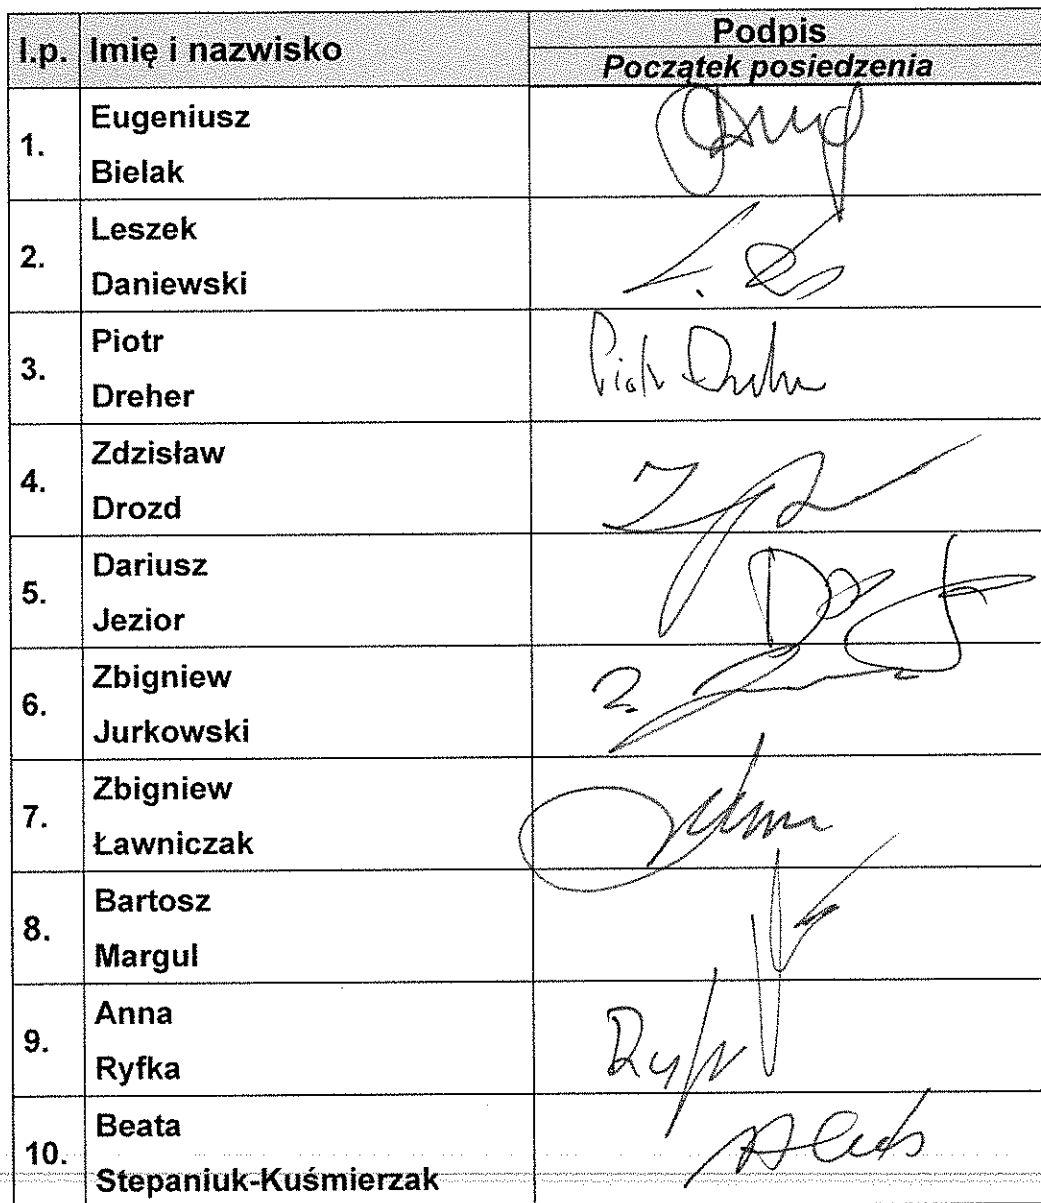 l.p. Imię i nazwisko Podpis
Początek posiedzenia
1. Eugeniusz
Bielak
2. Leszek
Daniewski
3. Piotr
Dreher
Piotr Dreher
4. Zdzisław
Drozd
5. Dariusz
Jezior
6. Zbigniew
Jurkowski
7. Zbigniew
Ławniczak
8. Bartosz
Margul
9. Anna
Ryfka
10. Beata
Stepaniuk-Kuśmierzak